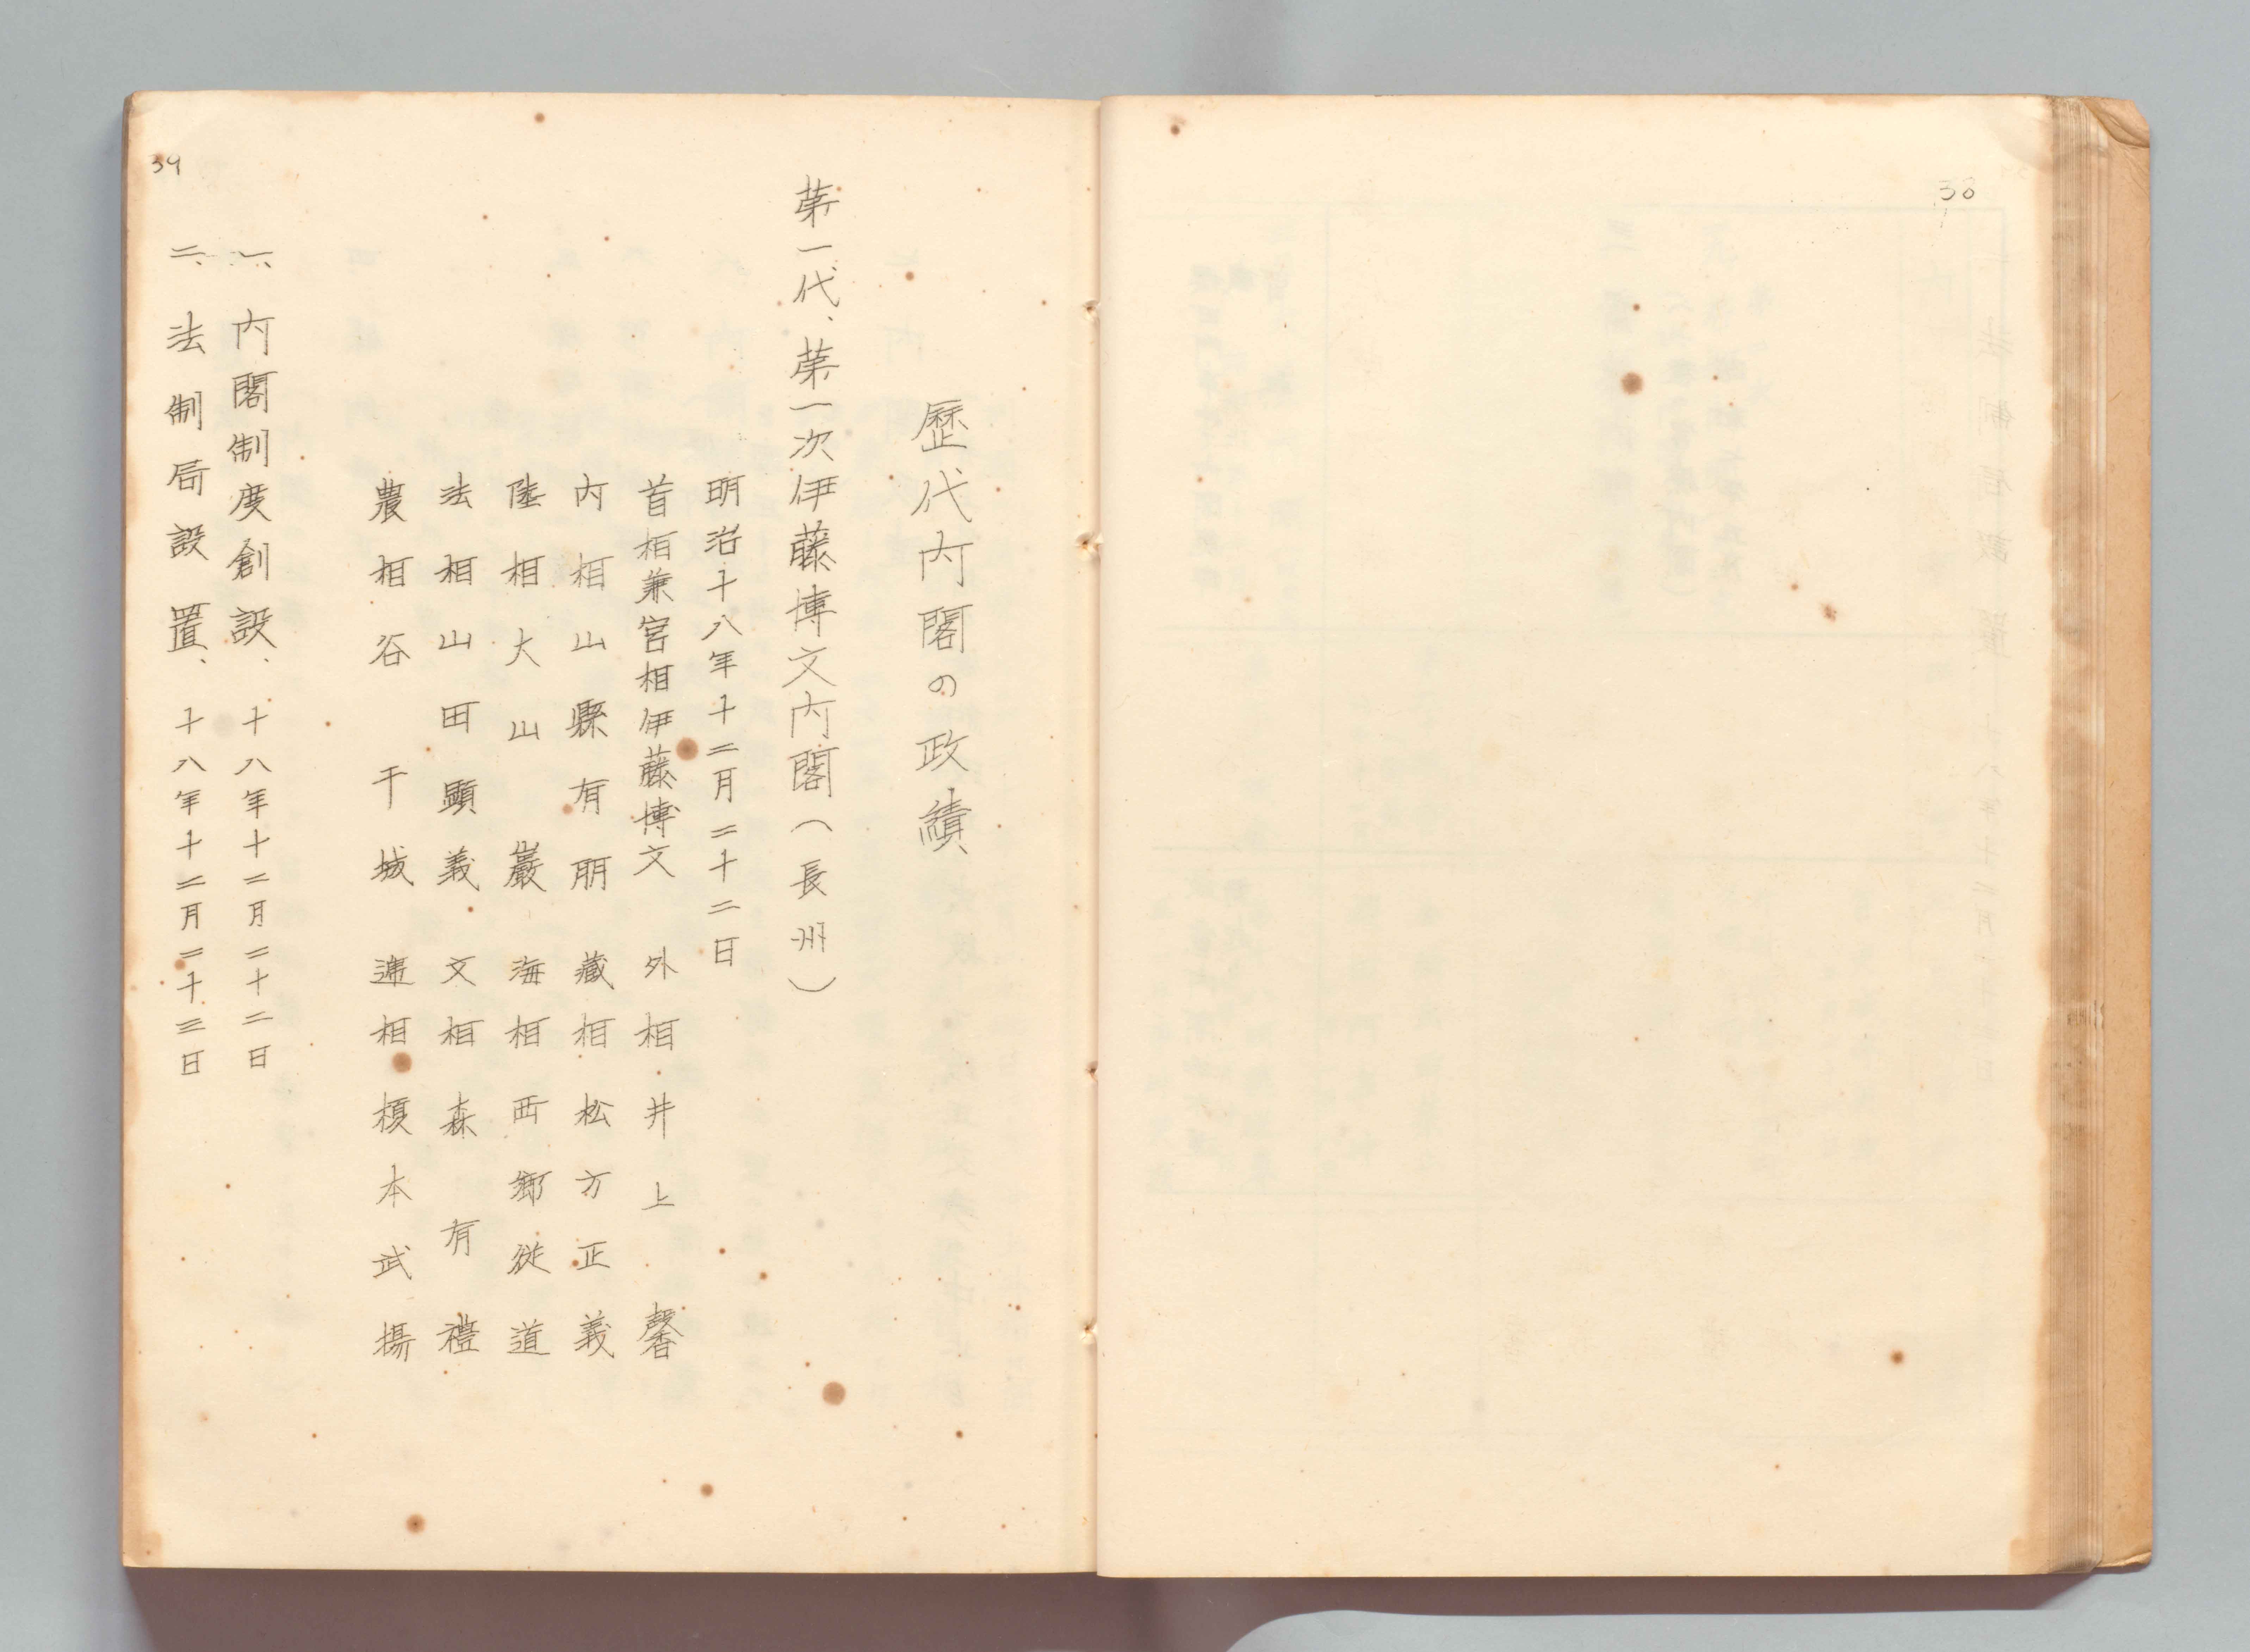 38
歴代内閣の政績
第一代、第一次伊藤博文内閣(長州)
明治十八年十二月二十二日
首相兼宮相伊藤博文 外相井上馨
内相山縣有朋 蔵相松方正義
陸相大山巖 海相西郷従道
法相山田顕義 文相森有禮
農相谷干城 逓相榎本武揚
一、内閣制度創設、十八年十二月二十二日
二、法制局設置、十八年十二月二十三日
39